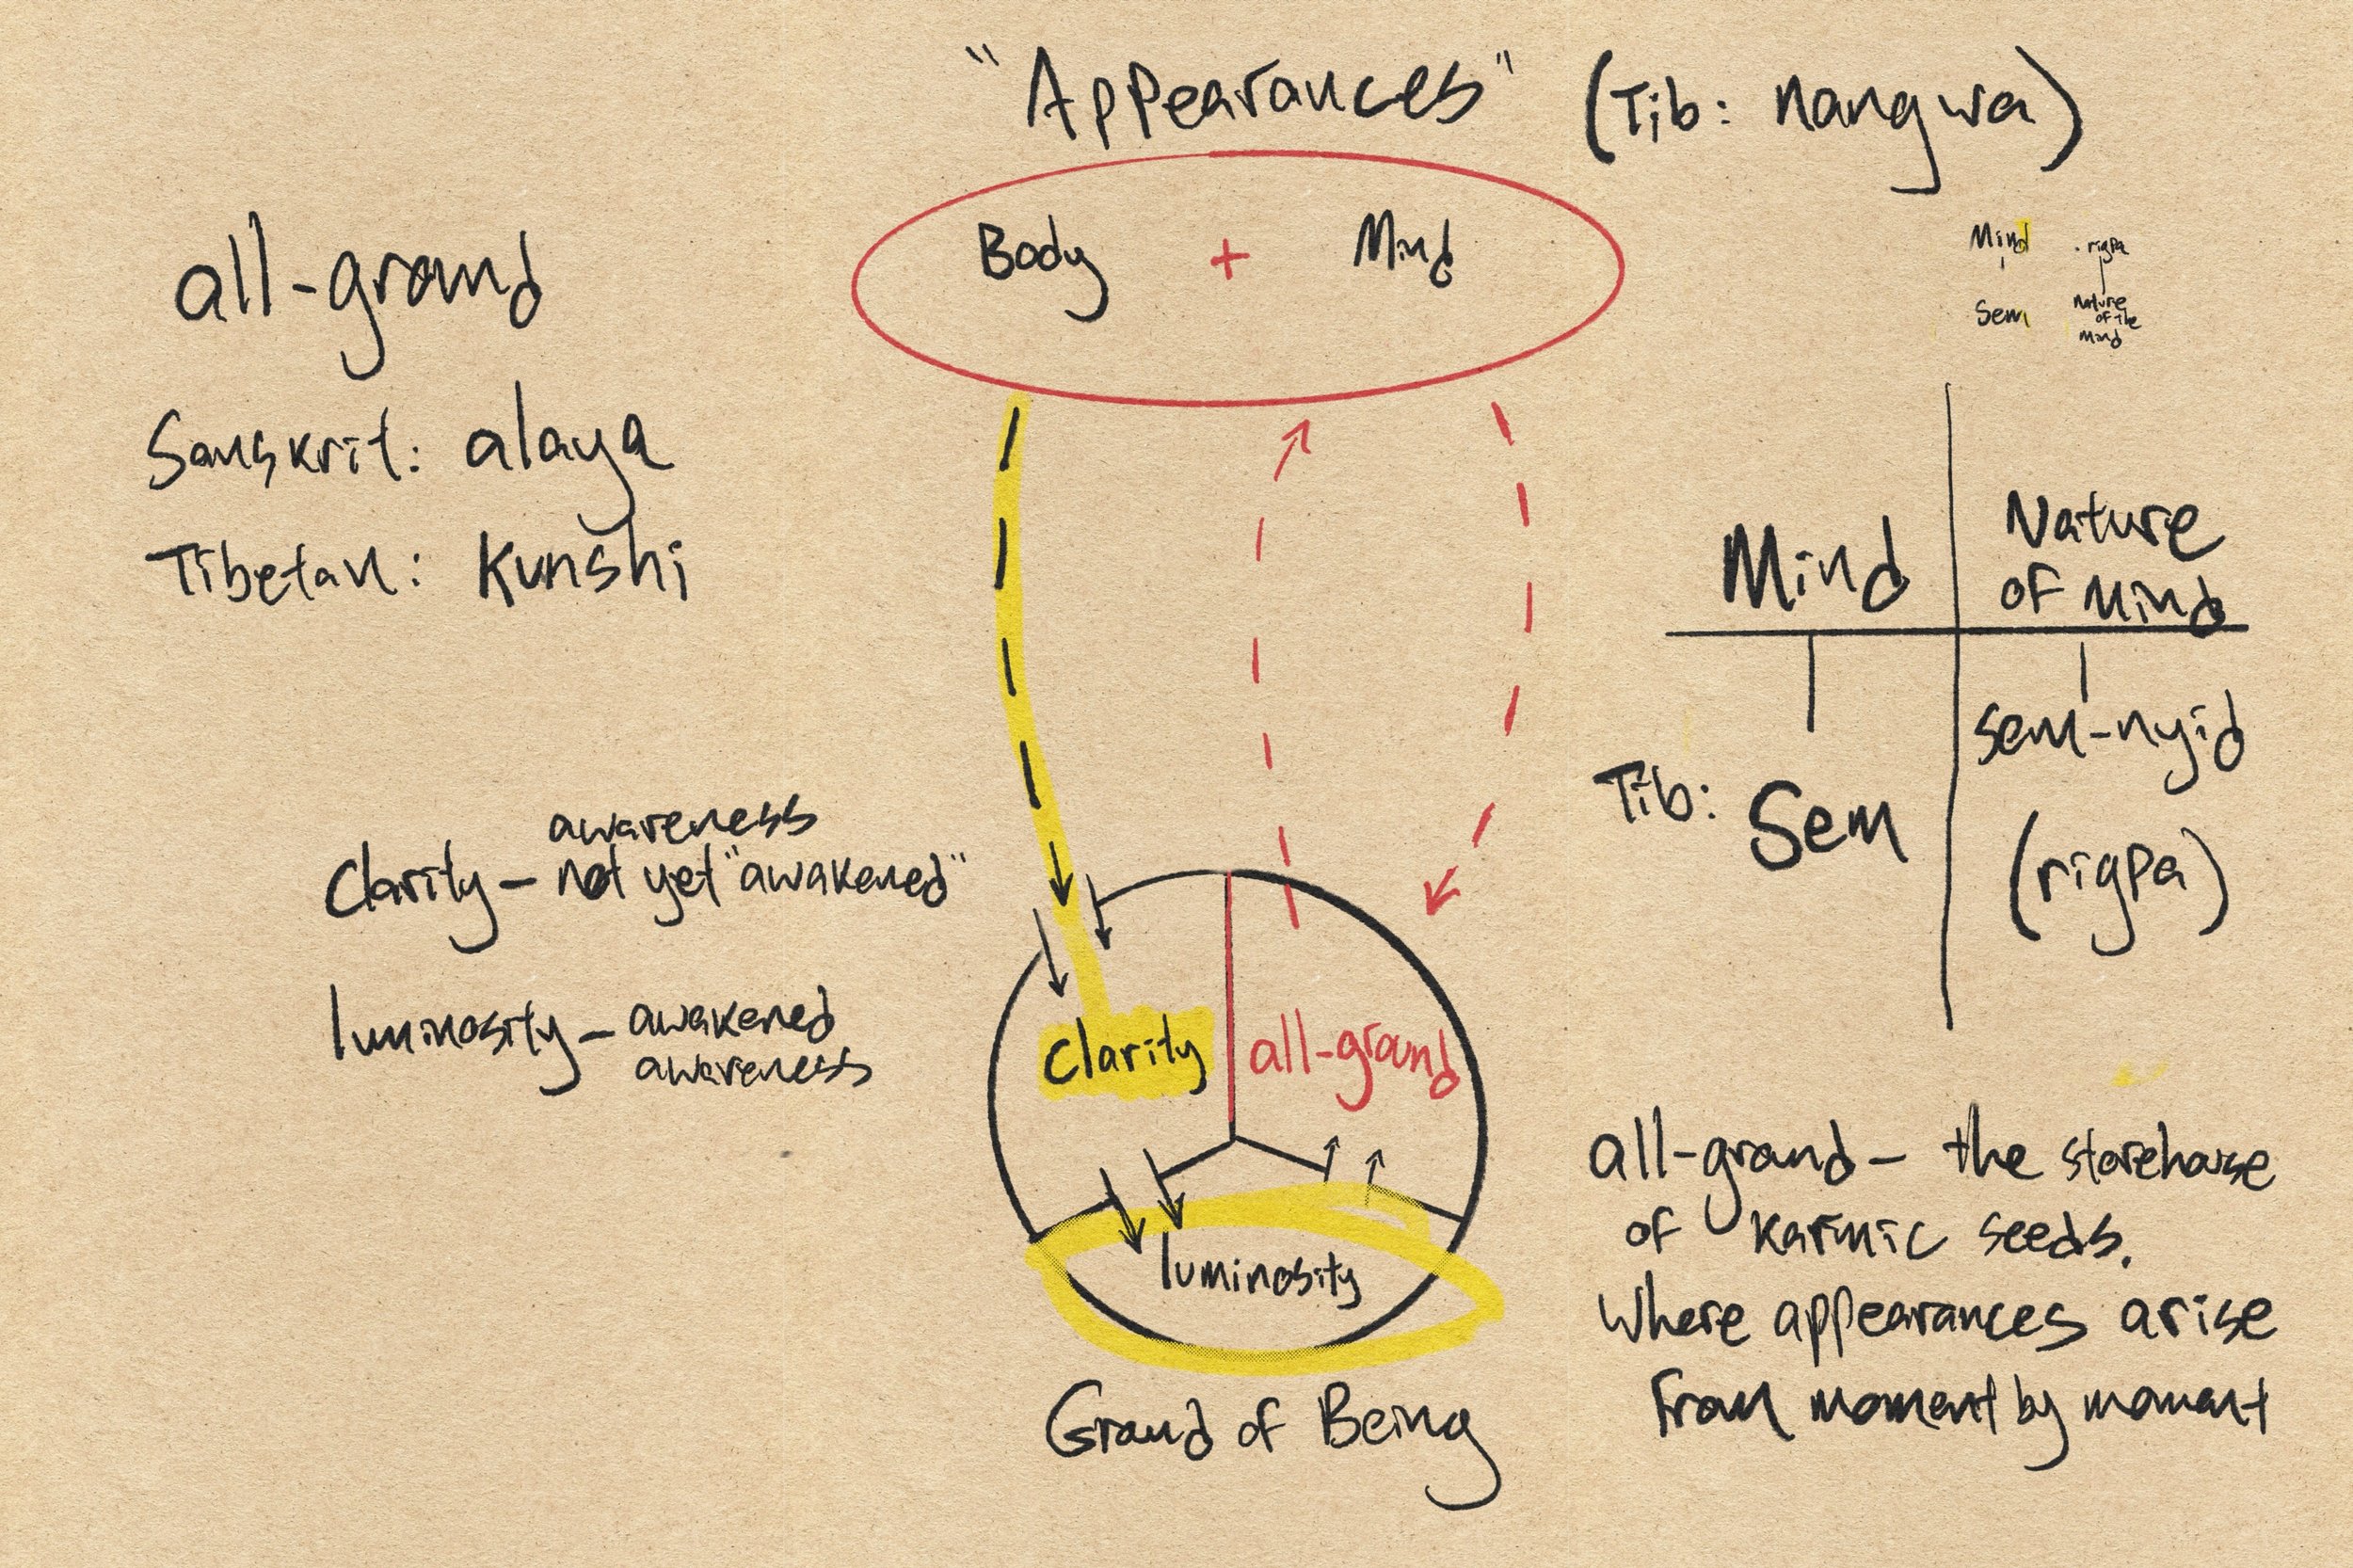 "Appearances" (Tib: nangwa)
Body + Mind
all-ground
Sanskrit: alaya
Tibetan: Kunshi
Mind rigpa
Sem Nature
of the
Mind
Mind
Nature
of Mind
Tib: Sem
sem-nyid
(rigpa)
awareness
Clarity - not yet "awakened"
luminosity - awakened
awareness
Clarity
all-ground
luminosity
Ground of Being
all-ground - the storehouse
of karmic seeds.
Where appearances arise
from moment by moment